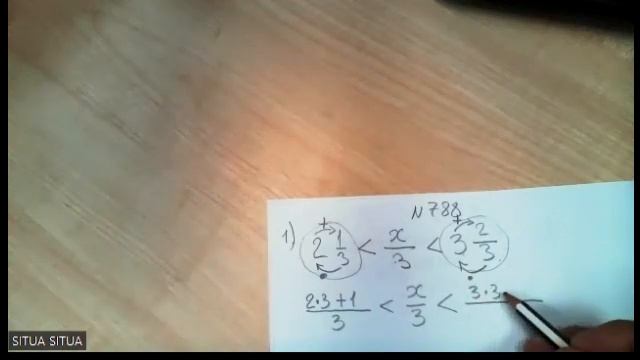 N788
1) 2 1/3 < x/3 < 3 2/3
(2·3+1)/3 < x/3 < 3·3
SITUA SITUA